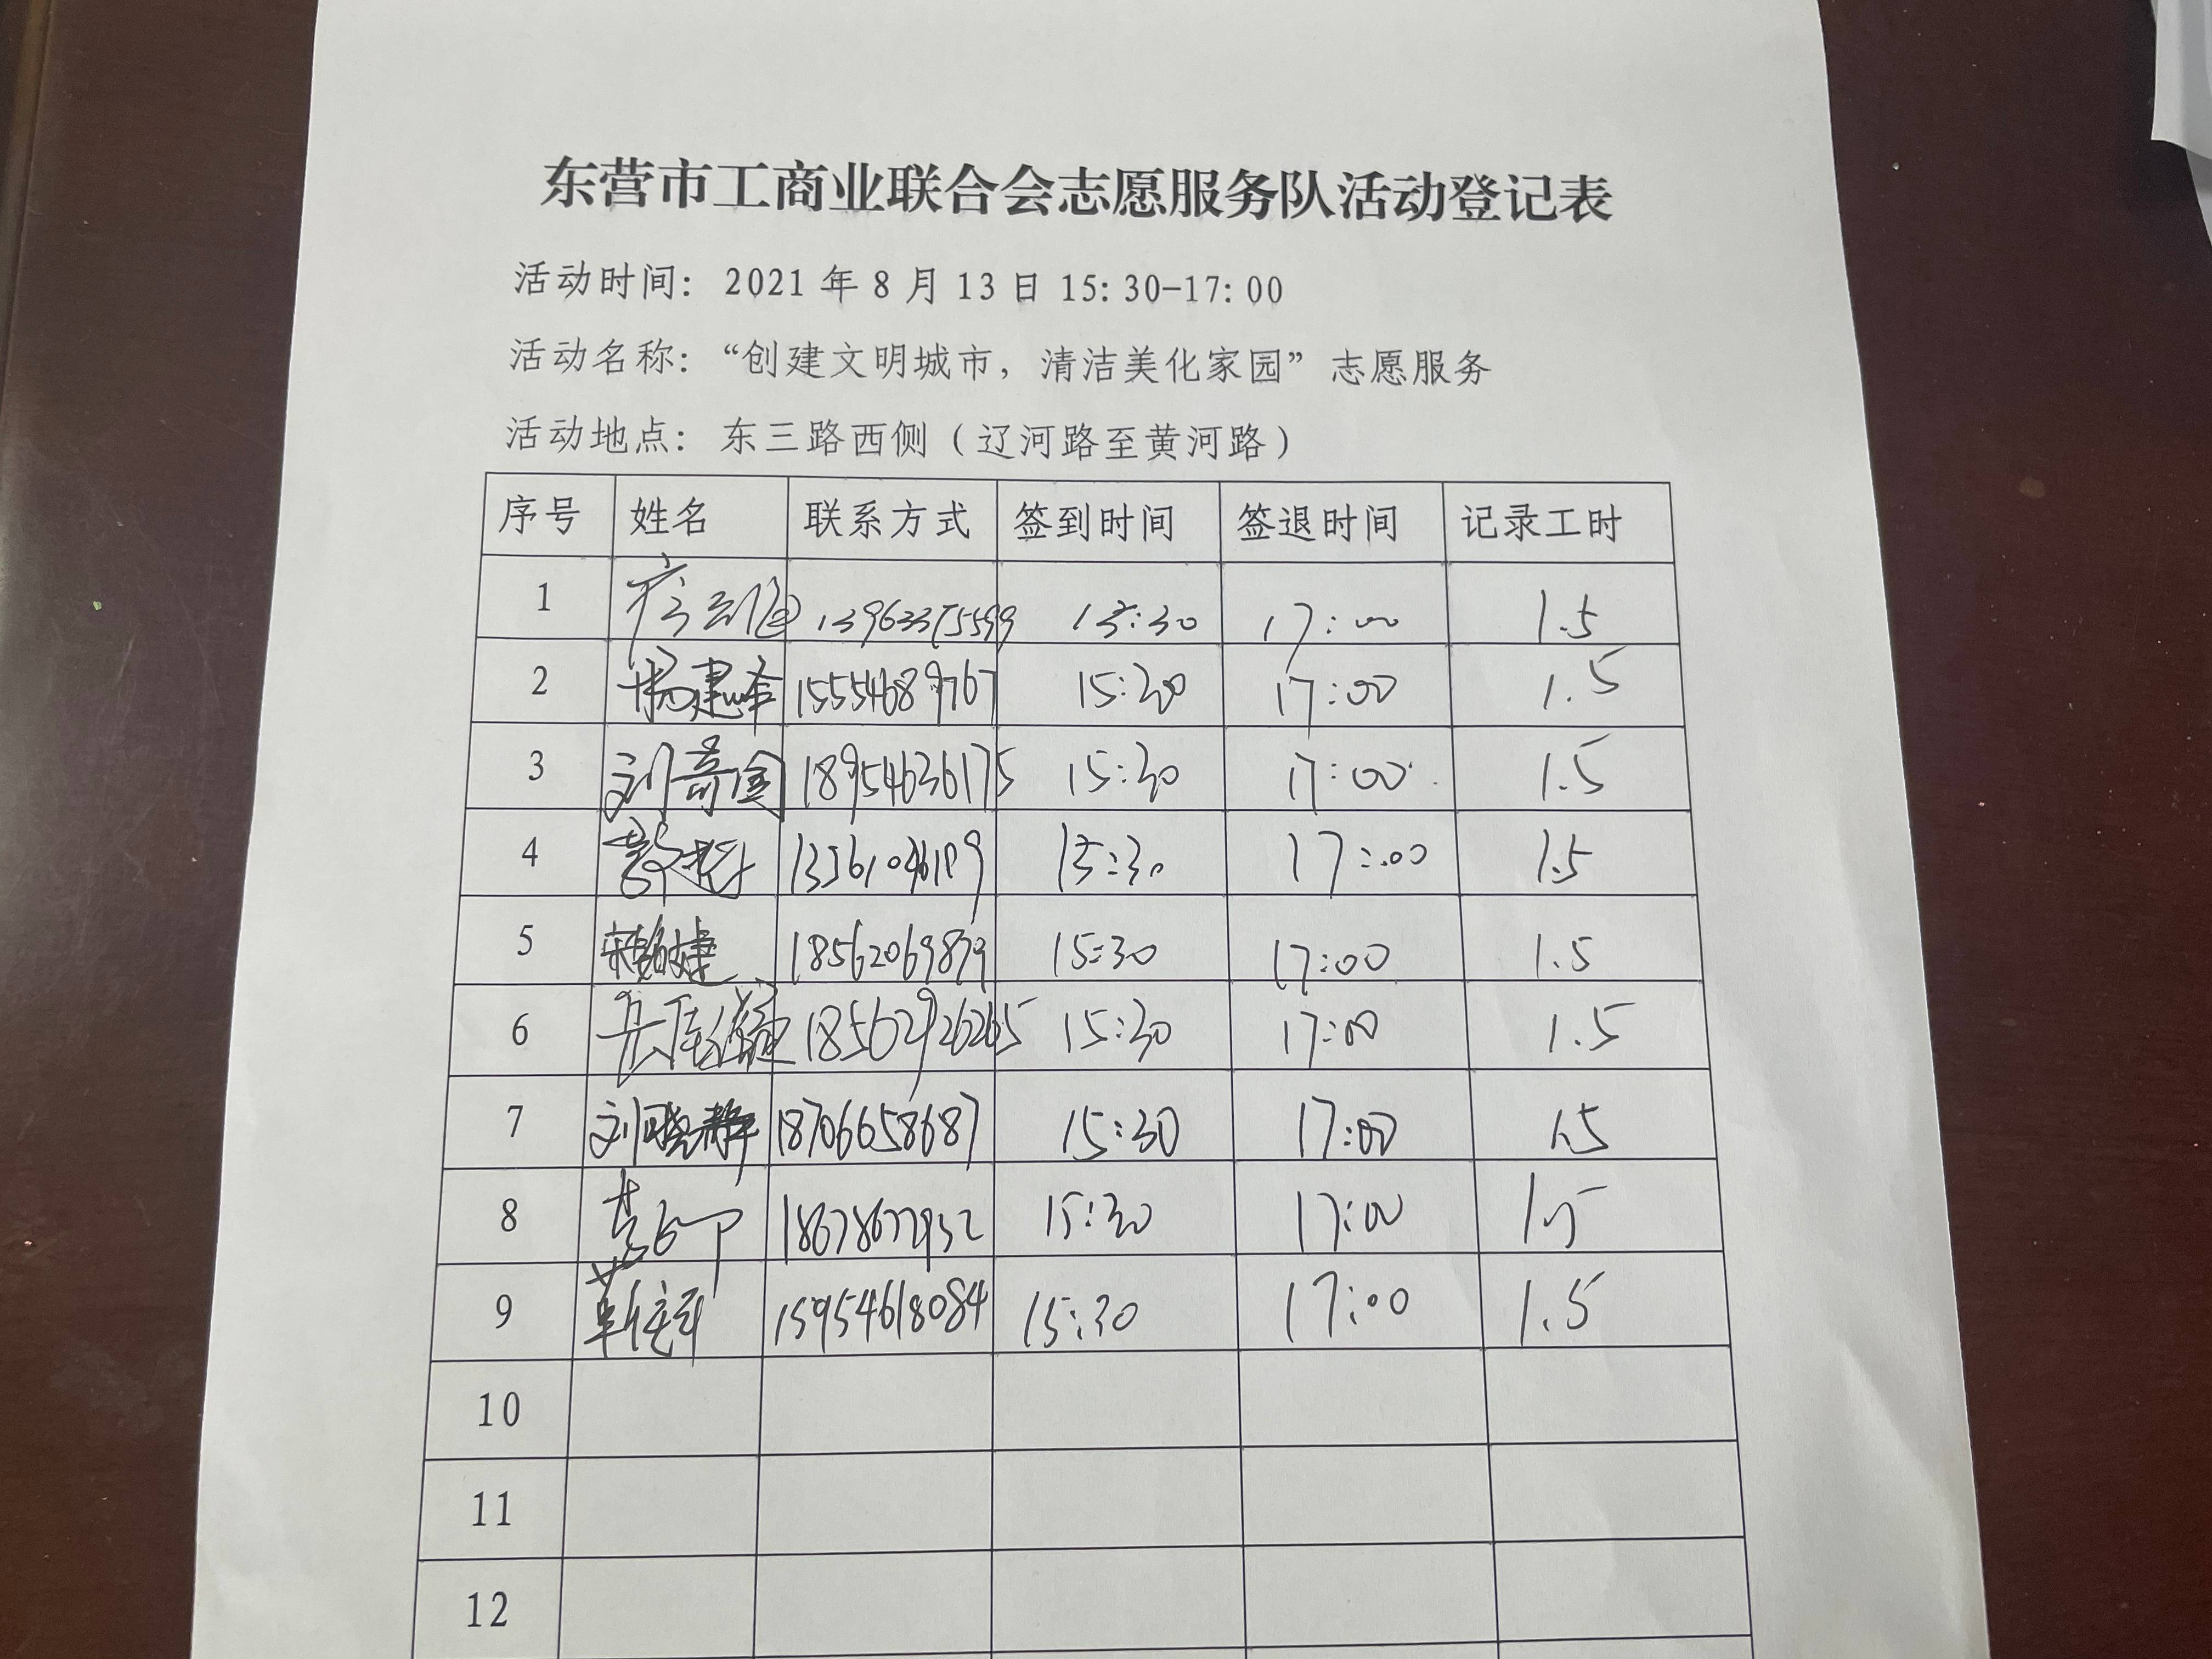 东营市工商业联合会志愿服务队活动登记表
活动时间: 2021 年 8 月 13 日 15: 30-17: 00
活动名称: “创建文明城市, 清洁美化家园” 志愿服务
活动地点: 东三路西侧 (辽河路至黄河路)
序号 姓名 联系方式 签到时间 签退时间 记录工时
1 15:30 17:00 1.5
2 杨建峰 15554689767 15:30 17:00 1.5
3 18954636175 15:30 17:00 1.5
4 15:30 17:00 1.5
5 18562069879 15:30 17:00 1.5
6 15:30 17:00 1.5
7 刘晓静 18706658687 15:30 17:00 1.5
8 18678677932 15:30 17:00 1.5
9 15954618084 15:30 17:00 1.5
10
11
12